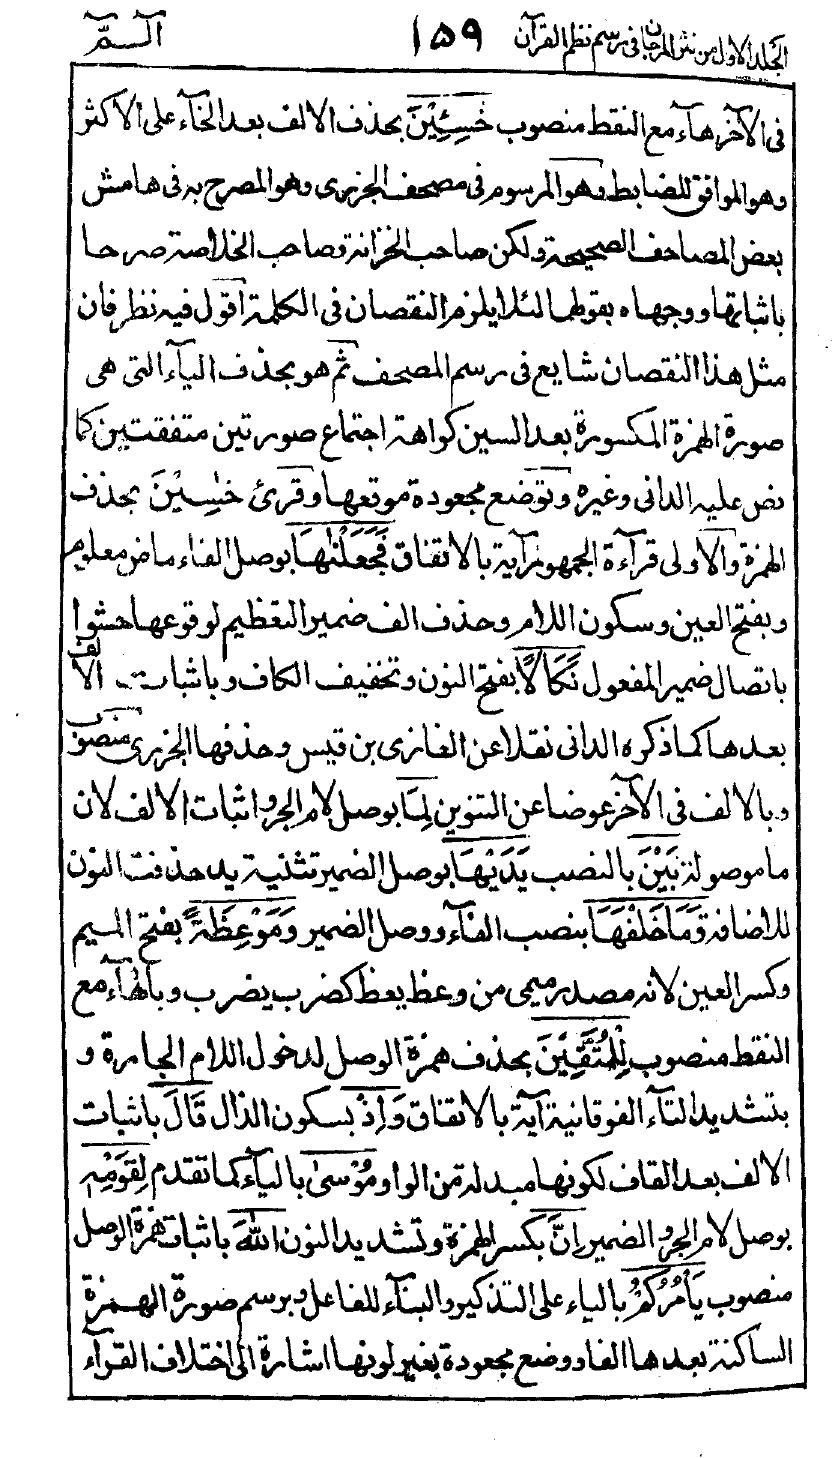 الجلد الاول من نثر المرجان فى رسم نظم القرآن ١٥٩ الــمّ
فى الآخر هآء مع النقط منصوب خٰسِئِيْنَ بحذف الالف بعد الخآء على الاكثر
وهو الموافق للضابط وهو المرسوم فى مصحف الجزرى وهو المصرح به فى هامش
بعض المصاحف الصحيحة ولكن صاحب الخزانة وصاحب الخلاصة صرحا
باثباتها ووجهاه بقولهما لئلا يلزم النقصان فى الكلمة اقول فيه نظر فان
مثل هذا النقصان شايع فى رسم المصحف ثم هو بحذف اليآء التى هى
صورة الهمزة المكسورة بعد السين كراهة اجتماع صورتين متفقتين كما
نص عليه الدانى وغيره وتوضع مجعودة موقعها وقرئ خٰسِيْنَ بحذف
الهمزة والاولى قرآءة الجمهور آية بالاتفاق فَجَعَلْنٰهَا بوصل الفاء ماض معلوم
وبفتح العين وسكون اللام وحذف الف ضمير التعظيم لوقوعها حشوا
باتصال ضمير المفعول نَكَالًا بفتح النون وتخفيف الكاف وباثبات الالف
بعدها كما ذكره الدانى نقلا عن الغازى بن قيس وحذفها الجزرى منصوب
وبالالف فى الآخر عوضا عن التنوين لِمَا بوصل لام الجر واثبات الالف لان
ما موصولة بَيْنَ بالنصب يَدَيْهَا بوصل الضمير تثنية يد حذفت النون
للاضافة وَمَا خَلْفَهَا بنصب الفآء ووصل الضمير وَمَوْعِظَةً بفتح الميم
وكسر العين لانه مصدر ميمى من وعظ يعظ كضرب يضرب وبالهآء مع
النقط منصوب لِلْمُتَّقِيْنَ بحذف همزة الوصل لدخول اللام الجارة و
بتشديد التآء الفوقانية آية بالاتفاق وَاِذْ بسكون الذال قَالَ باثبات
الالف بعد القاف لكونها مبدلة من الواو مُوْسٰى بالياء كما تقدم لِقَوْمِهٖ
بوصل لام الجر والضمير اِنَّ بكسر الهمزة وتشديد النون اللّٰهَ باثبات همزة الوصل
منصوب يَأْمُرُكُمْ بالياء على التذكير والبنآء للفاعل وبرسم صورة الهمزة
الساكنة بعدها الفا ووضع مجعودة بغير لونها اشارة الى اختلاف القرآء